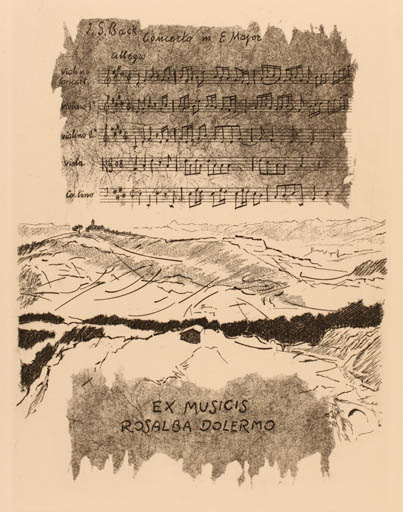 J. S. Bach
Concerto in E Major
allegro
Violino
Concert.
Violino 1°
Violino 2°
Viola
EX MUSICIS
ROSALBA DOLERMO